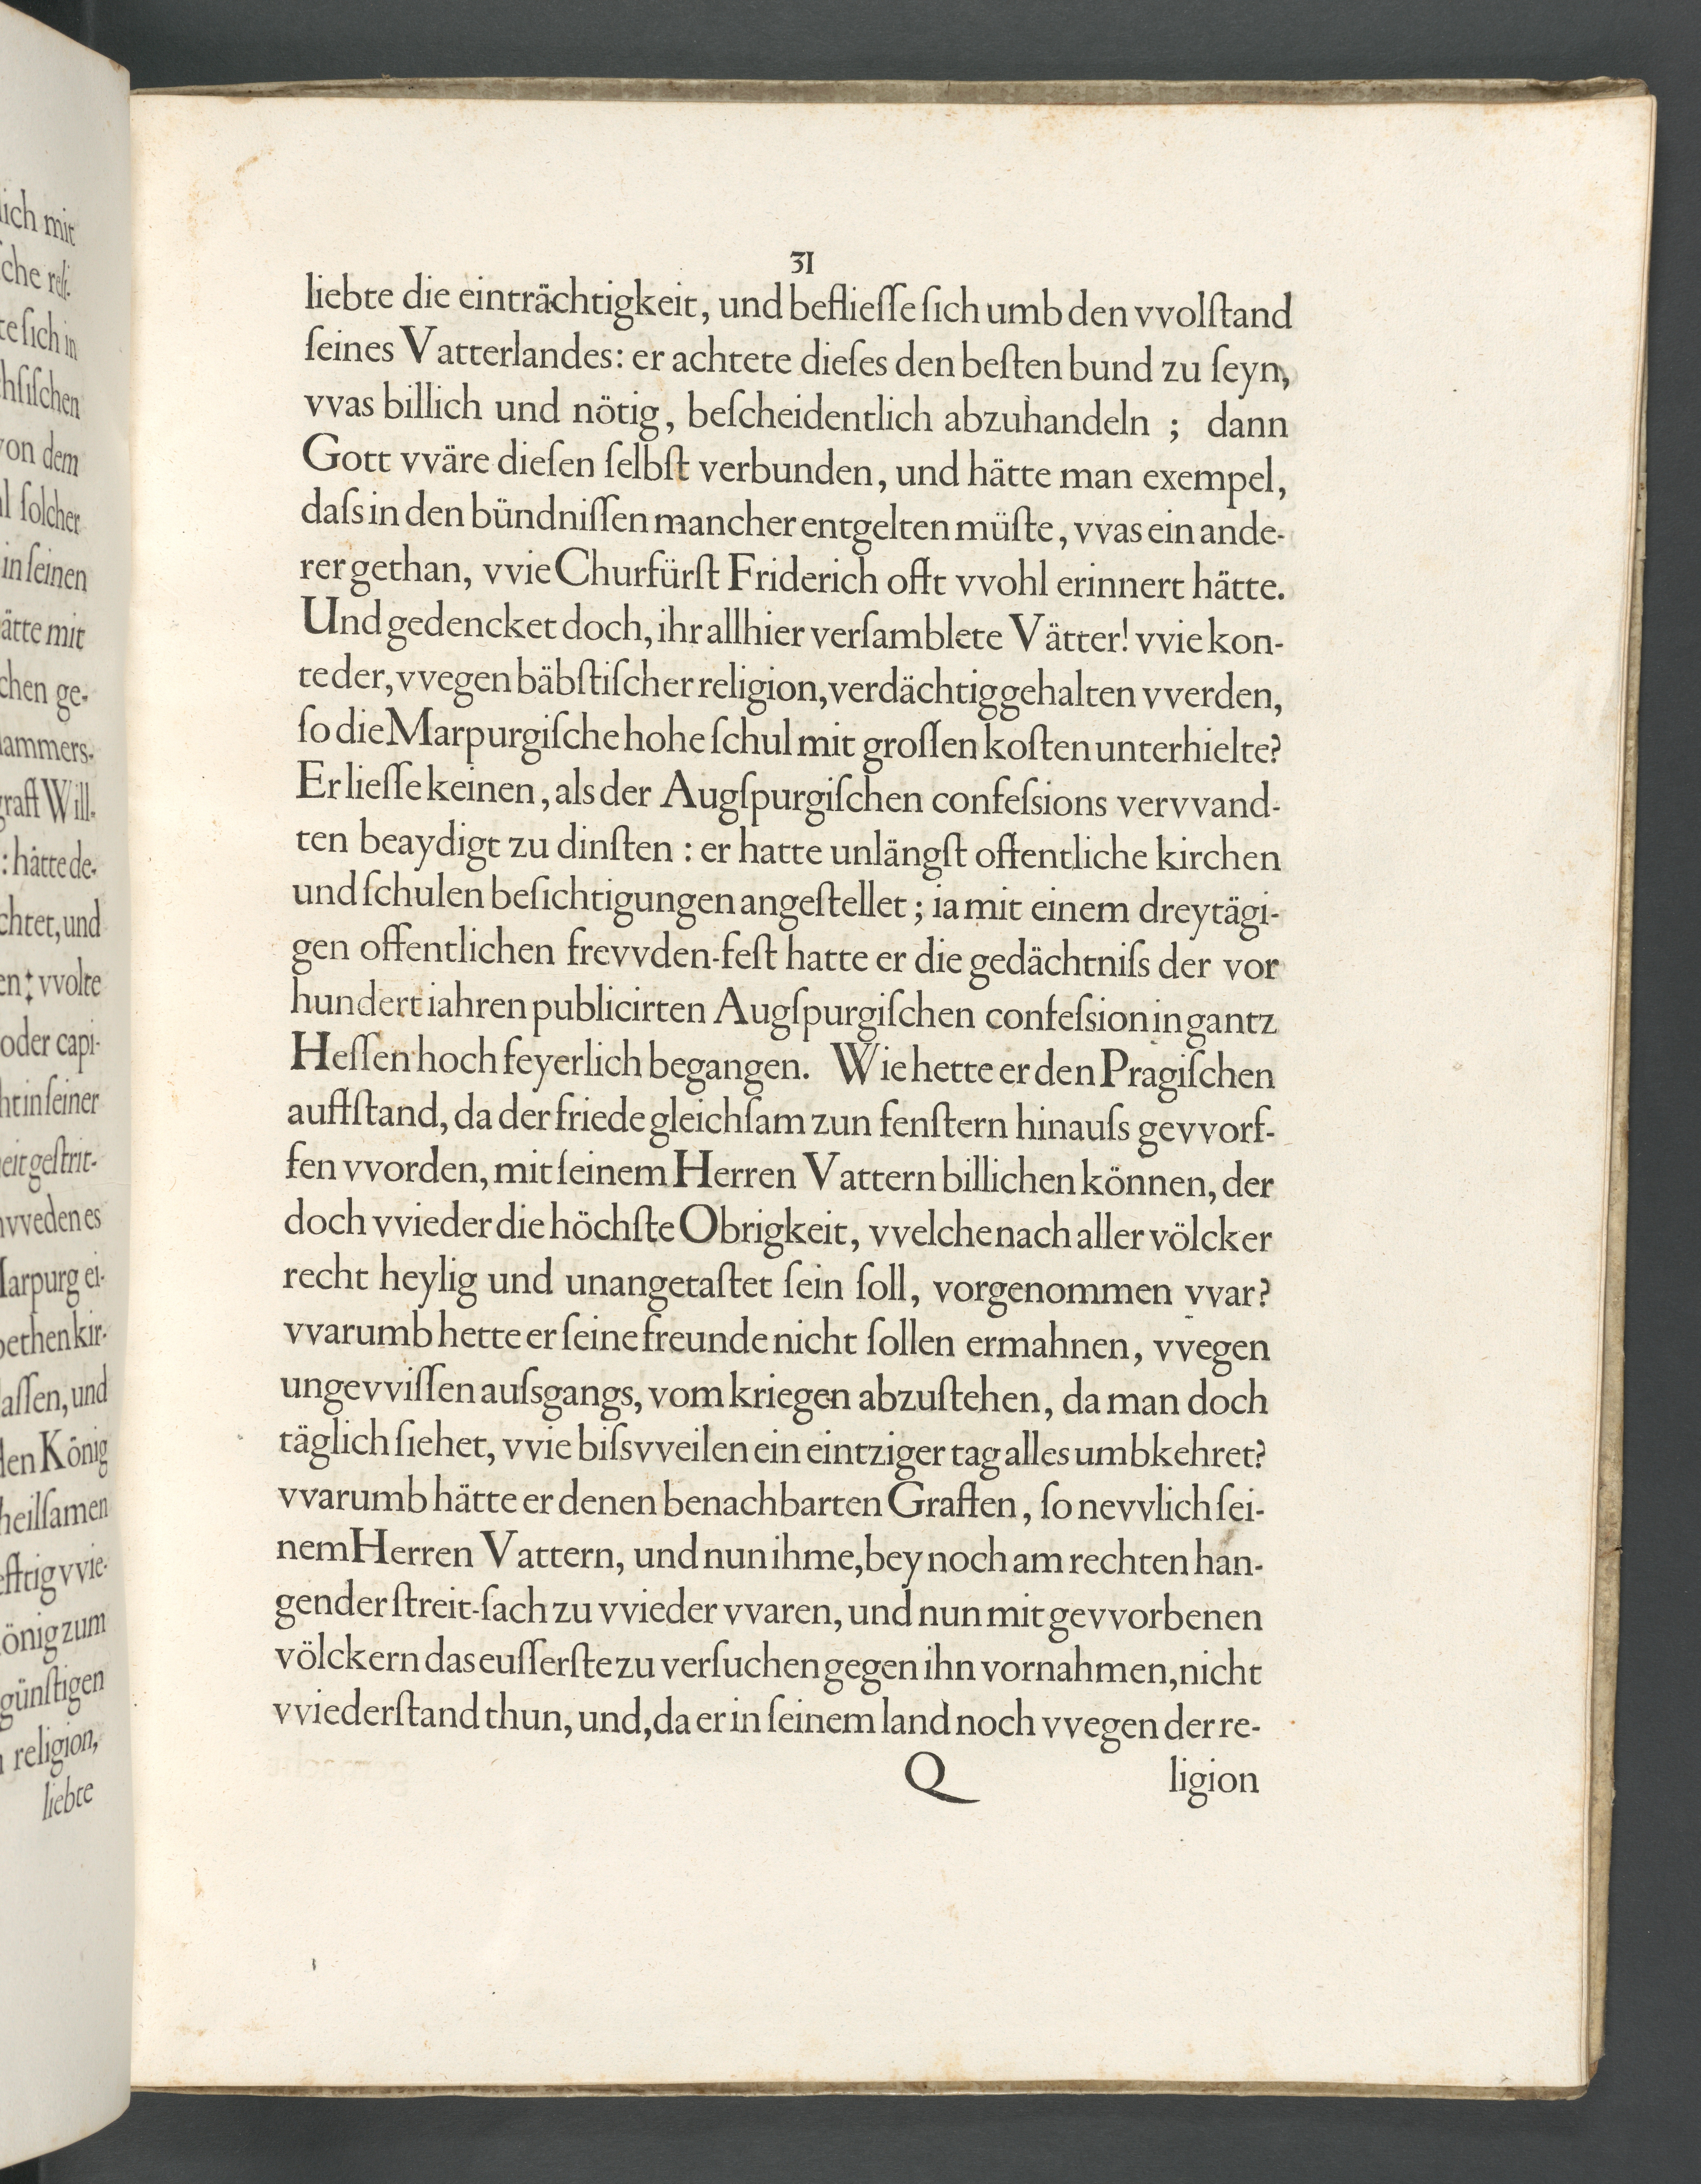 lich mit
sche reli-
te ſich in
chſiſchen
von dem
l ſolcher
in ſeinen
ätte mit
chen ge-
ammers-
graff Will-
: hätte de-
chtet, und
en: vvolte
oder capi-
ht in ſeiner
eit geſtrit-
vveden es
Marpurg ei-
bethen kir-
aſſen, und
den König
heilſamen
efftig vvie-
önig zum
günſtigen
religion,
liebte
31
liebte die einträchtigkeit, und beflieſſe ſich umb den vvolſtand
ſeines Vatterlandes: er achtete dieſes den beſten bund zu ſeyn,
vvas billich und nötig, beſcheidentlich abzuhandeln ; dann
Gott vväre dieſen ſelbſt verbunden, und hätte man exempel,
daſs in den bündniſſen mancher entgelten müſte, vvas ein ande-
rer gethan, vvie Churfürſt Friderich offt vvohl erinnert hätte.
Und gedencket doch, ihr allhier verſamblete Vätter! vvie kon-
te der, vvegen bäbſtiſcher religion, verdächtig gehalten vverden,
ſo die Marpurgiſche hohe ſchul mit groſſen koſten unterhielte?
Er lieſſe keinen, als der Augſpurgiſchen confeſsions vervvand-
ten beaydigt zu dinſten : er hatte unlängſt offentliche kirchen
und ſchulen beſichtigungen angeſtellet ; ia mit einem dreytägi-
gen offentlichen frevvden-feſt hatte er die gedächtniſs der vor
hundert iahren publicirten Augſpurgiſchen confeſsion in gantz
Heſſen hoch feyerlich begangen. Wie hette er den Pragiſchen
auffſtand, da der friede gleichſam zun fenſtern hinauſs gevvorf-
fen vvorden, mit ſeinem Herren Vattern billichen können, der
doch vvieder die höchſte Obrigkeit, vvelche nach aller völcker
recht heylig und unangetaſtet ſein ſoll, vorgenommen vvar?
vvarumb hette er ſeine freunde nicht ſollen ermahnen, vvegen
ungevviſſen auſsgangs, vom kriegen abzuſtehen, da man doch
täglich ſiehet, vvie biſsvveilen ein eintziger tag alles umbkehret?
vvarumb hätte er denen benachbarten Graffen, ſo nevvlich ſei-
nem Herren Vattern, und nun ihme, bey noch am rechten han-
gender ſtreit-ſach zu vvieder vvaren, und nun mit gevvorbenen
völckern das euſſerſte zu verſuchen gegen ihn vornahmen, nicht
vviederſtand thun, und, da er in ſeinem land noch vvegen der re-
Q ligion